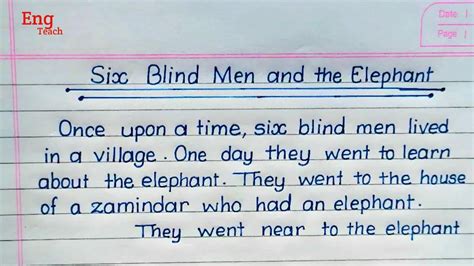 Eng
Teach
Date |
Page |
Six Blind Men and the Elephant
Once upon a time, six blind men lived
in a village. One day they went to learn
about the elephant. They went to the house
of a zamindar who had an elephant.
They went near to the elephant